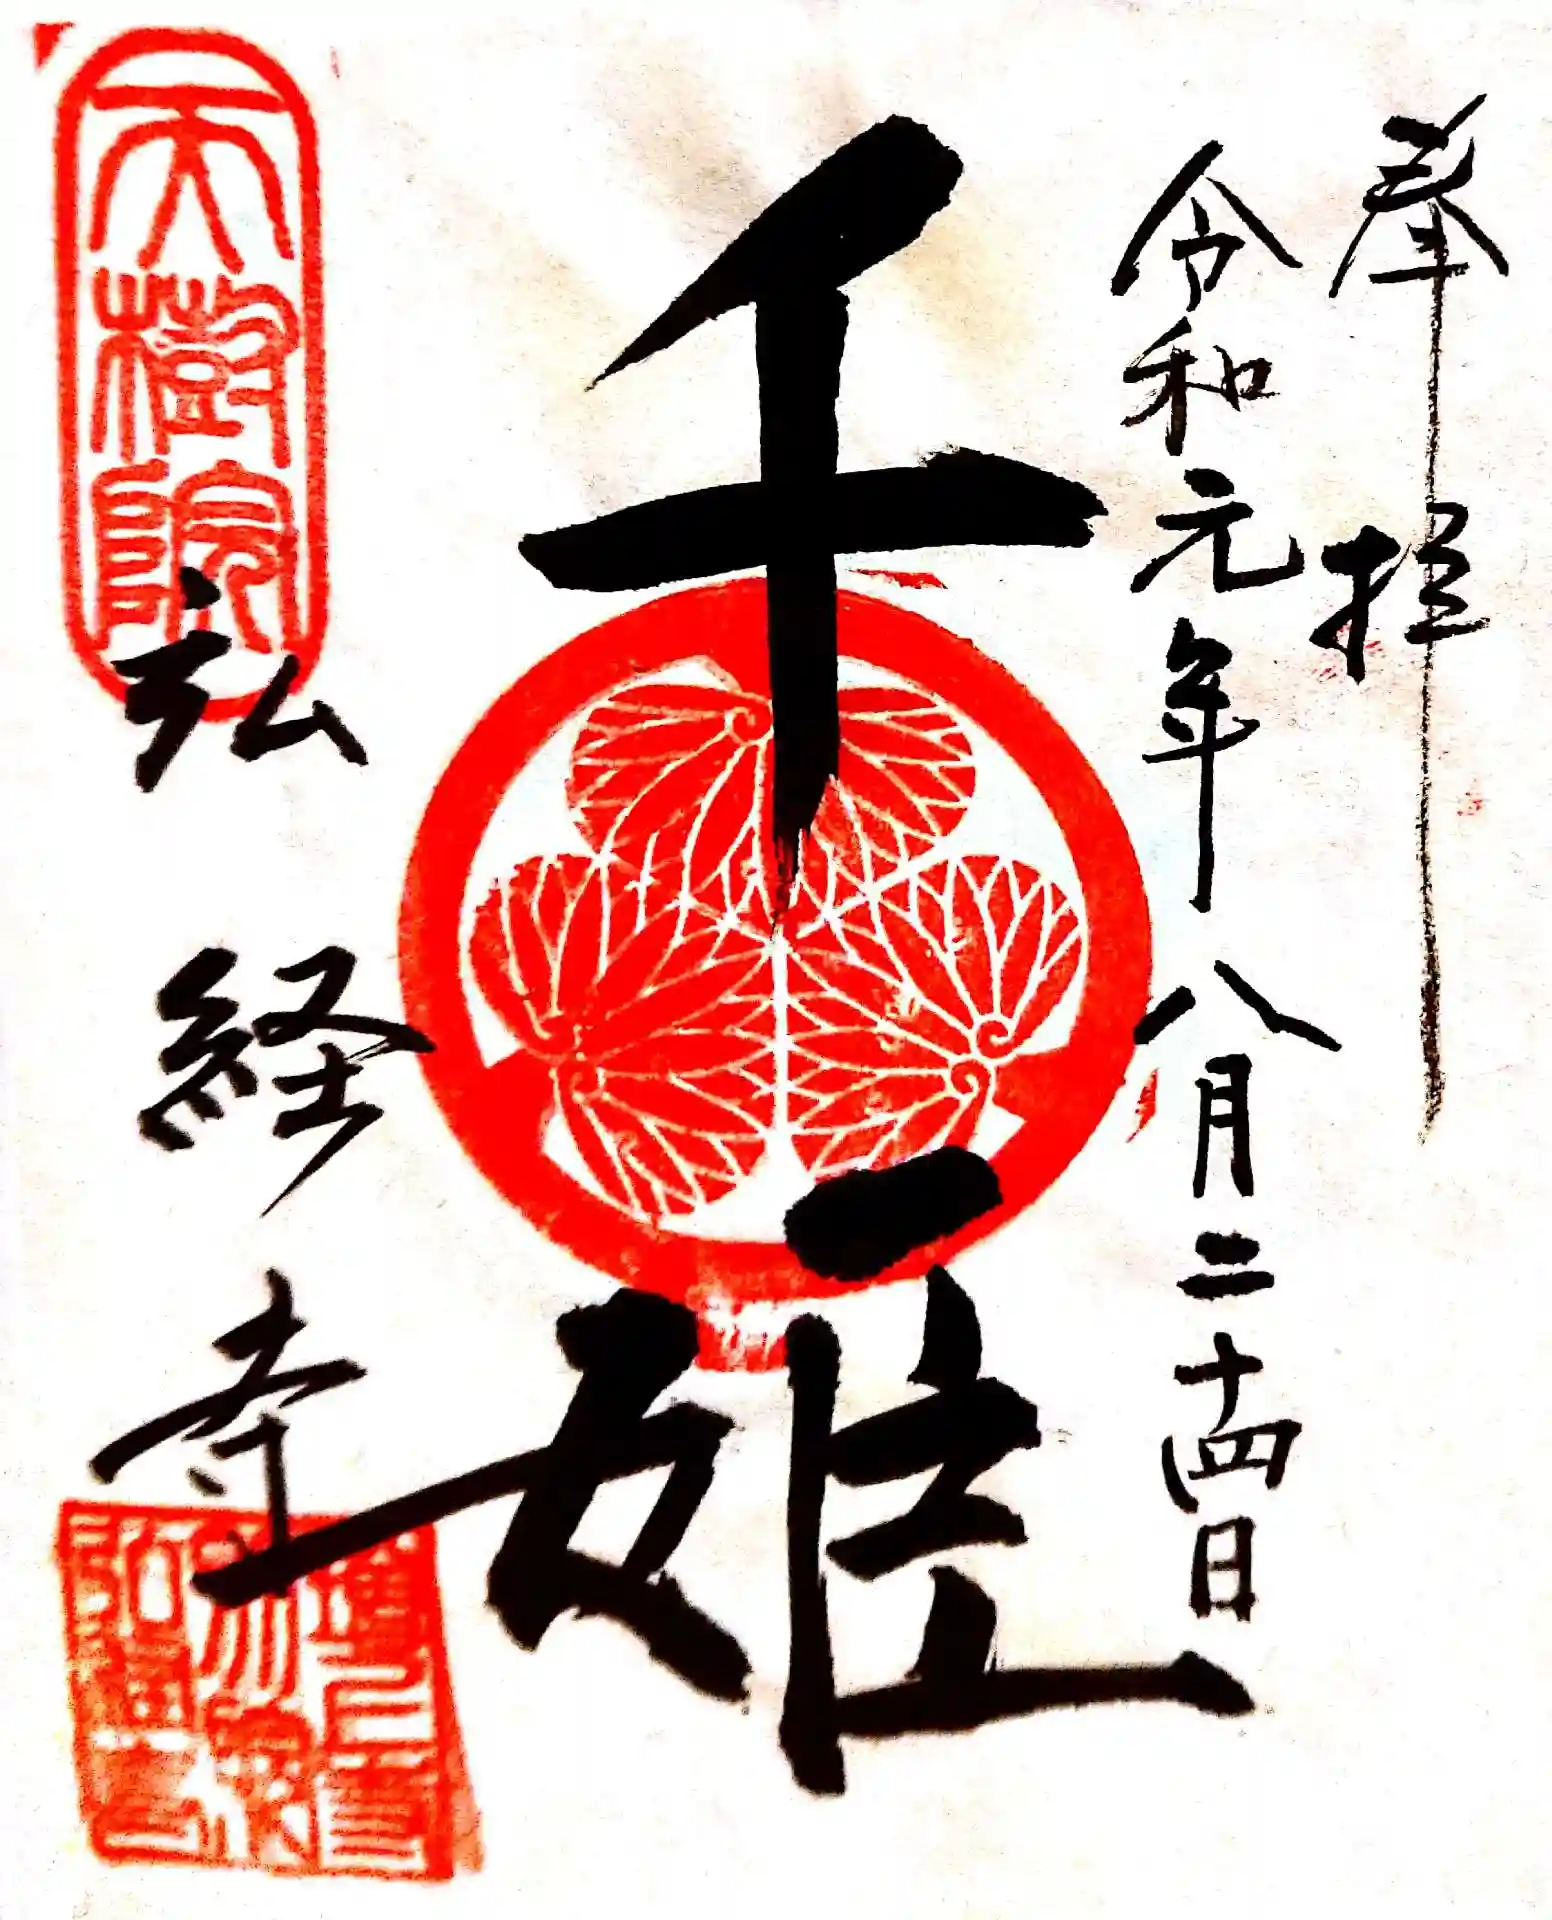 奉拝
令和元年八月二十四日
千姫
天樹院
弘経寺